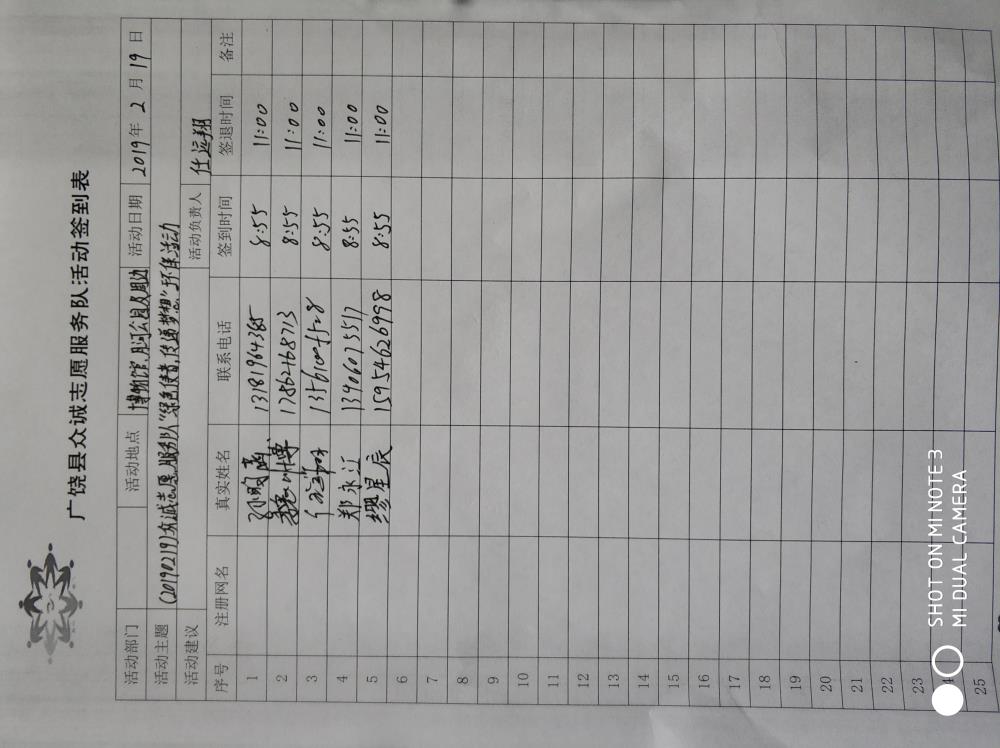 广饶县众诚志愿服务队活动签到表
活动部门 活动地点 博物馆、月河公园及周边 活动日期 2019年 2 月 19 日
活动主题 (20190219)众诚志愿服务队“绿色使者,传递梦想”环保活动
活动建议 活动负责人 任运翔
序号 注册网名 真实姓名 联系电话 签到时间 签退时间 备注
1 13181964385 8:55 11:00
2 17862168713 8:55 11:00
3 8:55 11:00
4 郑永江 13406075517 8:55 11:00
5 缪星辰 15954626998 8:55 11:00
6
7
8
9
10
11
12
13
14
15
16
17
18
19
20
21
22
23
25
SHOT ON MI NOTE 3
MI DUAL CAMERA